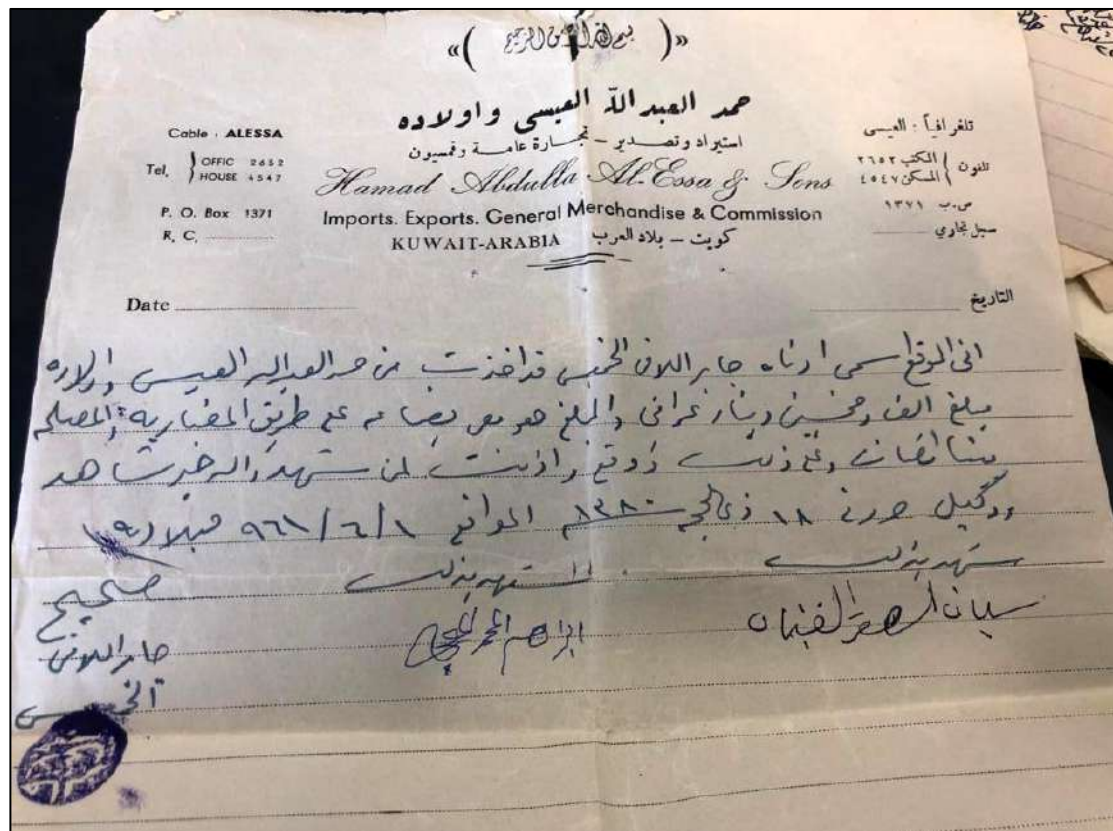 «( بسم الله الرحمن الرحيم )»
حمد العبد الله العيسى واولاده
استيراد وتصدير - تجارة عامة وقمسيون
Hamad Abdulla Al-Essa & Sons
Imports. Exports. General Merchandise & Commission
KUWAIT-ARABIA كويت - بلاد العرب
Cable . ALESSA
Tel, OFFIC 2652
HOUSE 4547
P. O. Box 1371
R, C, ..........
تلغرافياً : العيسى
تلفون المكتب ٢٦٥٢
المسكن ٤٥٤٧
ص.ب ١٣٧١
سجل تجاري
Date .......... التاريخ
اني الموقع اسمي ادناه جابر اللافي قد اخذت من حمد العبدالله العيسى واولاده
مبلغ الف وخمسين دينار عراقي والمبلغ هو معي بضاعه على طريق المضاربه والمصلح
بيننا وعلى ذلك اوقع واذنت لمن يشهد والله خير شاهد
ووكيل ١٨ ذي الحج ١٣٨٠ الموافق ١/٦/٩٦١ ميلاديه
يشهد بذلك
يشهد بذلك
صحيح
سليمان
ابراهيم
جابر اللافي